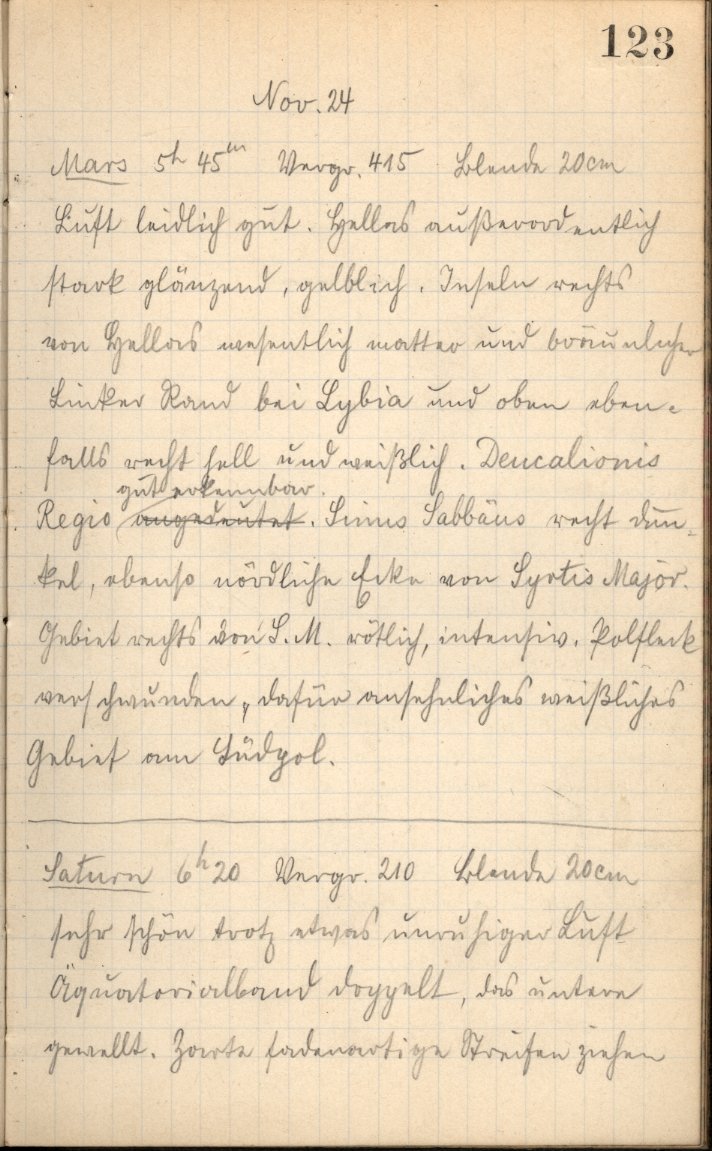 123
Nov. 24
Mars 5h 45m Vergr. 415 Blende 20cm
Luft leidlich gut. Hellas außerordentlich
stark glänzend, gelblich. Inseln rechts
von Hellas wesentlich matter und bräunlicher
Linker Rand bei Lybia und oben eben-
falls recht hell und weißlich. Deucalionis
gut erkennbar.
Regio angedeutet. Sinus Sabbäus recht dun-
kel, ebenso nördliche Ecke von Syrtis Major.
Gebiet rechts von S. M. rötlich, intensiv. Polfleck
verschwunden, dafür ansehnliches weißliches
Gebiet am Südpol.
Saturn 6h 20 Vergr. 210 Blende 20cm
sehr schön trotz etwas unruhiger Luft
Äquatorialband doppelt, das untere
gewellt. Zarte fadenartige Streifen ziehen